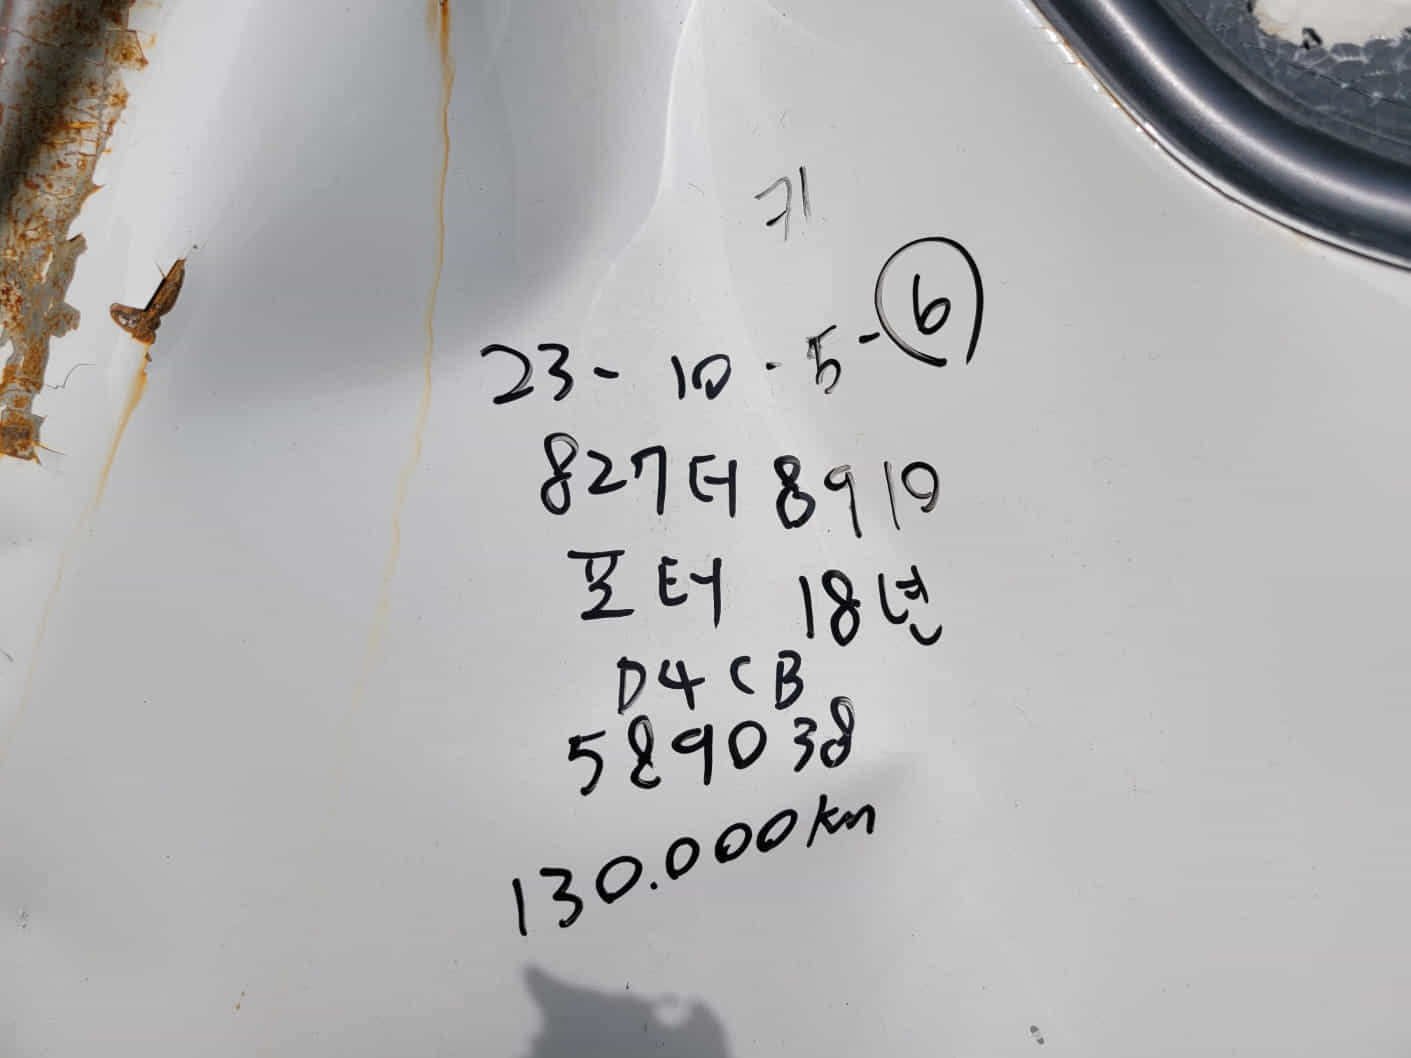 키
23- 10 . 5-⑥
827터 8910
포터 18년
D4CB
589038
130.000km